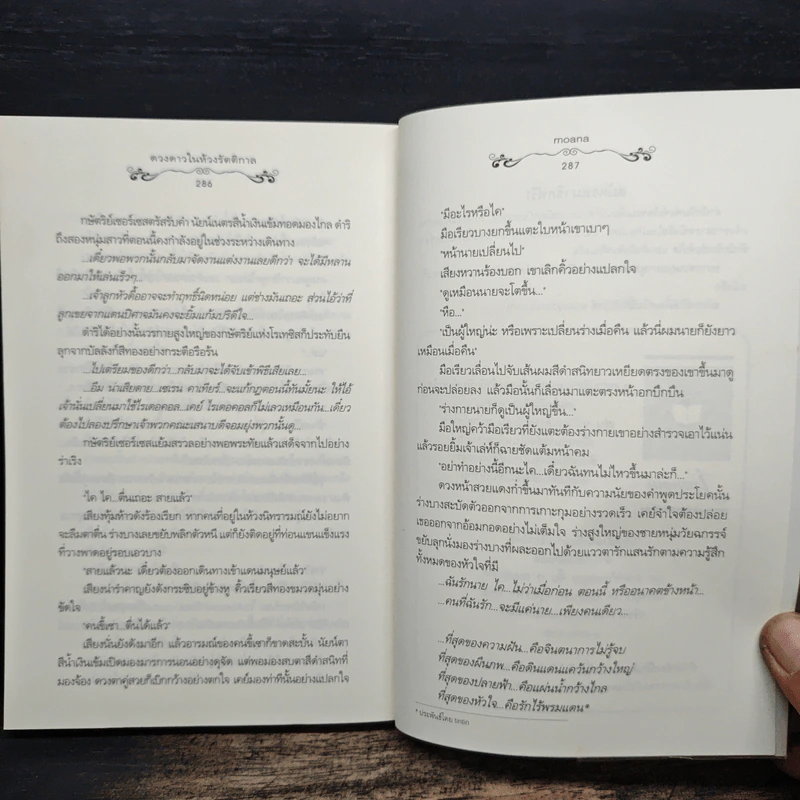 ดวงดาวในห้วงรัตติกาล
286
กษัตริย์เซอร์เซสตรัสรับคำ นัยน์เนตรสีน้ำเงินเข้มทอดมองไกล ดำริ
ถึงสองหนุ่มสาวที่ตอนนี้คงกำลังอยู่ในช่วงระหว่างเดินทาง
...เดี๋ยวพอพวกนั้นกลับมาจัดงานแต่งงานเลยดีกว่า จะได้มีหลาน
ออกมาให้เล่นเร็วๆ...
...เจ้าลูกหัวดื้ออาจจะทำฤทธิ์นิดหน่อย แต่ช่างมันเถอะ ส่วนไอ้ว่าที่
ลูกเขยจากแดนปีศาจมันคงจะยิ้มแก้มปริดีใจ...
ดำริได้อย่างนั้นวรกายสูงใหญ่ของกษัตริย์แห่งโรเทซิสก็ประทับยืน
ลุกจากบัลลังก์สีทองอย่างกระตือรือร้น
...ไปเตรียมของดีกว่า...กลับมาจะได้จับเข้าพิธีเสียเลย...
...อืม น่าเสียดาย...เซเรน คาเทียร์...จะแก้กฎตอนนี้ทันมั้ยนะ ให้ไอ้
เจ้านั่นเปลี่ยนมาใช้โรเตอคอล...เคย์ โรเตอคอลก็ไม่เลวเหมือนกัน...เดี๋ยว
ต้องไปลองปรึกษาเจ้าพวกคณะเสนาบดีจอมยุ่งพวกนั้นดู...
กษัตริย์เซอร์เซสแย้มสรวลอย่างพอพระทัยแล้วเสด็จจากไปอย่าง
ร่าเริง
"ไค ไค...ตื่นเถอะ สายแล้ว"
เสียงทุ้มห้าวดังร้องเรียก หากคนที่อยู่ในห้วงนิทรารมณ์ยังไม่อยาก
จะลืมตาตื่น ร่างบางเลยขยับพลิกตัวหนี แต่ก็ยังติดอยู่ที่ท่อนแขนแข็งแรง
ที่วางพาดอยู่รอบเอวบาง
"สายแล้วนะ เดี๋ยวต้องออกเดินทางเข้าแดนมนุษย์แล้ว"
เสียงน่ารำคาญยังดังกระซิบอยู่ข้างหู คิ้วเรียวสีทองขมวดมุ่นอย่าง
ขัดใจ
"คนขี้เซา...ตื่นได้แล้ว"
เสียงนั่นยังดังมาอีก แล้วอารมณ์ของคนขี้เซาก็ขาดสะบั้น นัยน์ตา
สีน้ำเงินเข้มเปิดมองมารการนอนอย่างดุจัด แต่พอมองสบตาสีดำสนิทที่
มองจ้อง ดวงตาคู่สวยก็เบิกกว้างอย่างตกใจ เคย์มองท่าทีนั้นอย่างแปลกใจ
moana
287
"มีอะไรหรือไค"
มือเรียวบางยกขึ้นแตะใบหน้าเขาเบาๆ
"หน้านายเปลี่ยนไป"
เสียงหวานร้องบอก เขาเลิกคิ้วอย่างแปลกใจ
"ดูเหมือนนายจะโตขึ้น..."
"หือ..."
"เป็นผู้ใหญ่น่ะ หรือเพราะเปลี่ยนร่างเมื่อคืน แล้วนี่ผมนายก็ยังยาว
เหมือนเมื่อคืน"
มือเรียวเลื่อนไปจับเส้นผมสีดำสนิทยาวเหยียดตรงของเขาขึ้นมาดู
ก่อนจะปล่อยลง แล้วมือนั้นก็เลื่อนมาแตะตรงหน้าอกบึกบึน
"ร่างกายนายก็ดูเป็นผู้ใหญ่ขึ้น..."
มือใหญ่คว้ามือเรียวที่ยังแตะต้องร่างกายเขาอย่างสำรวจเอาไว้แน่น
แล้วรอยยิ้มเจ้าเล่ห์ก็ฉายชัดแต้มหน้าคม
"อย่าทำอย่างนี้อีกนะไค...เดี๋ยวฉันทนไม่ไหวขึ้นมาล่ะก็..."
ดวงหน้าสวยแดงก่ำขึ้นมาทันทีกับความนัยของคำพูดประโยคนั้น
ร่างบางสะบัดตัวออกจากการเกาะกุมอย่างรวดเร็ว เคย์จำใจต้องปล่อย
เธอออกจากอ้อมกอดอย่างไม่เต็มใจ ร่างสูงใหญ่ของชายหนุ่มวัยฉกรรจ์
ขยับลุกนั่งมองร่างบางที่ผละออกไปด้วยแววตารักแสนรักตามความรู้สึก
ทั้งหมดของหัวใจที่มี
...ฉันรักนาย ไค...ไม่ว่าเมื่อก่อน ตอนนี้ หรืออนาคตข้างหน้า...
...คนที่ฉันรัก...จะมีแค่นาย...เพียงคนเดียว...
...ที่สุดของความฝัน...คือจินตนาการไม่รู้จบ
ที่สุดของผืนภพ...คือดินแดนแคว้นกว้างใหญ่
ที่สุดของปลายฟ้า...คือแผ่นน้ำกว้างไกล
ที่สุดของหัวใจ...คือรักไร้พรมแดน*
* ประพันธ์โดย tintin